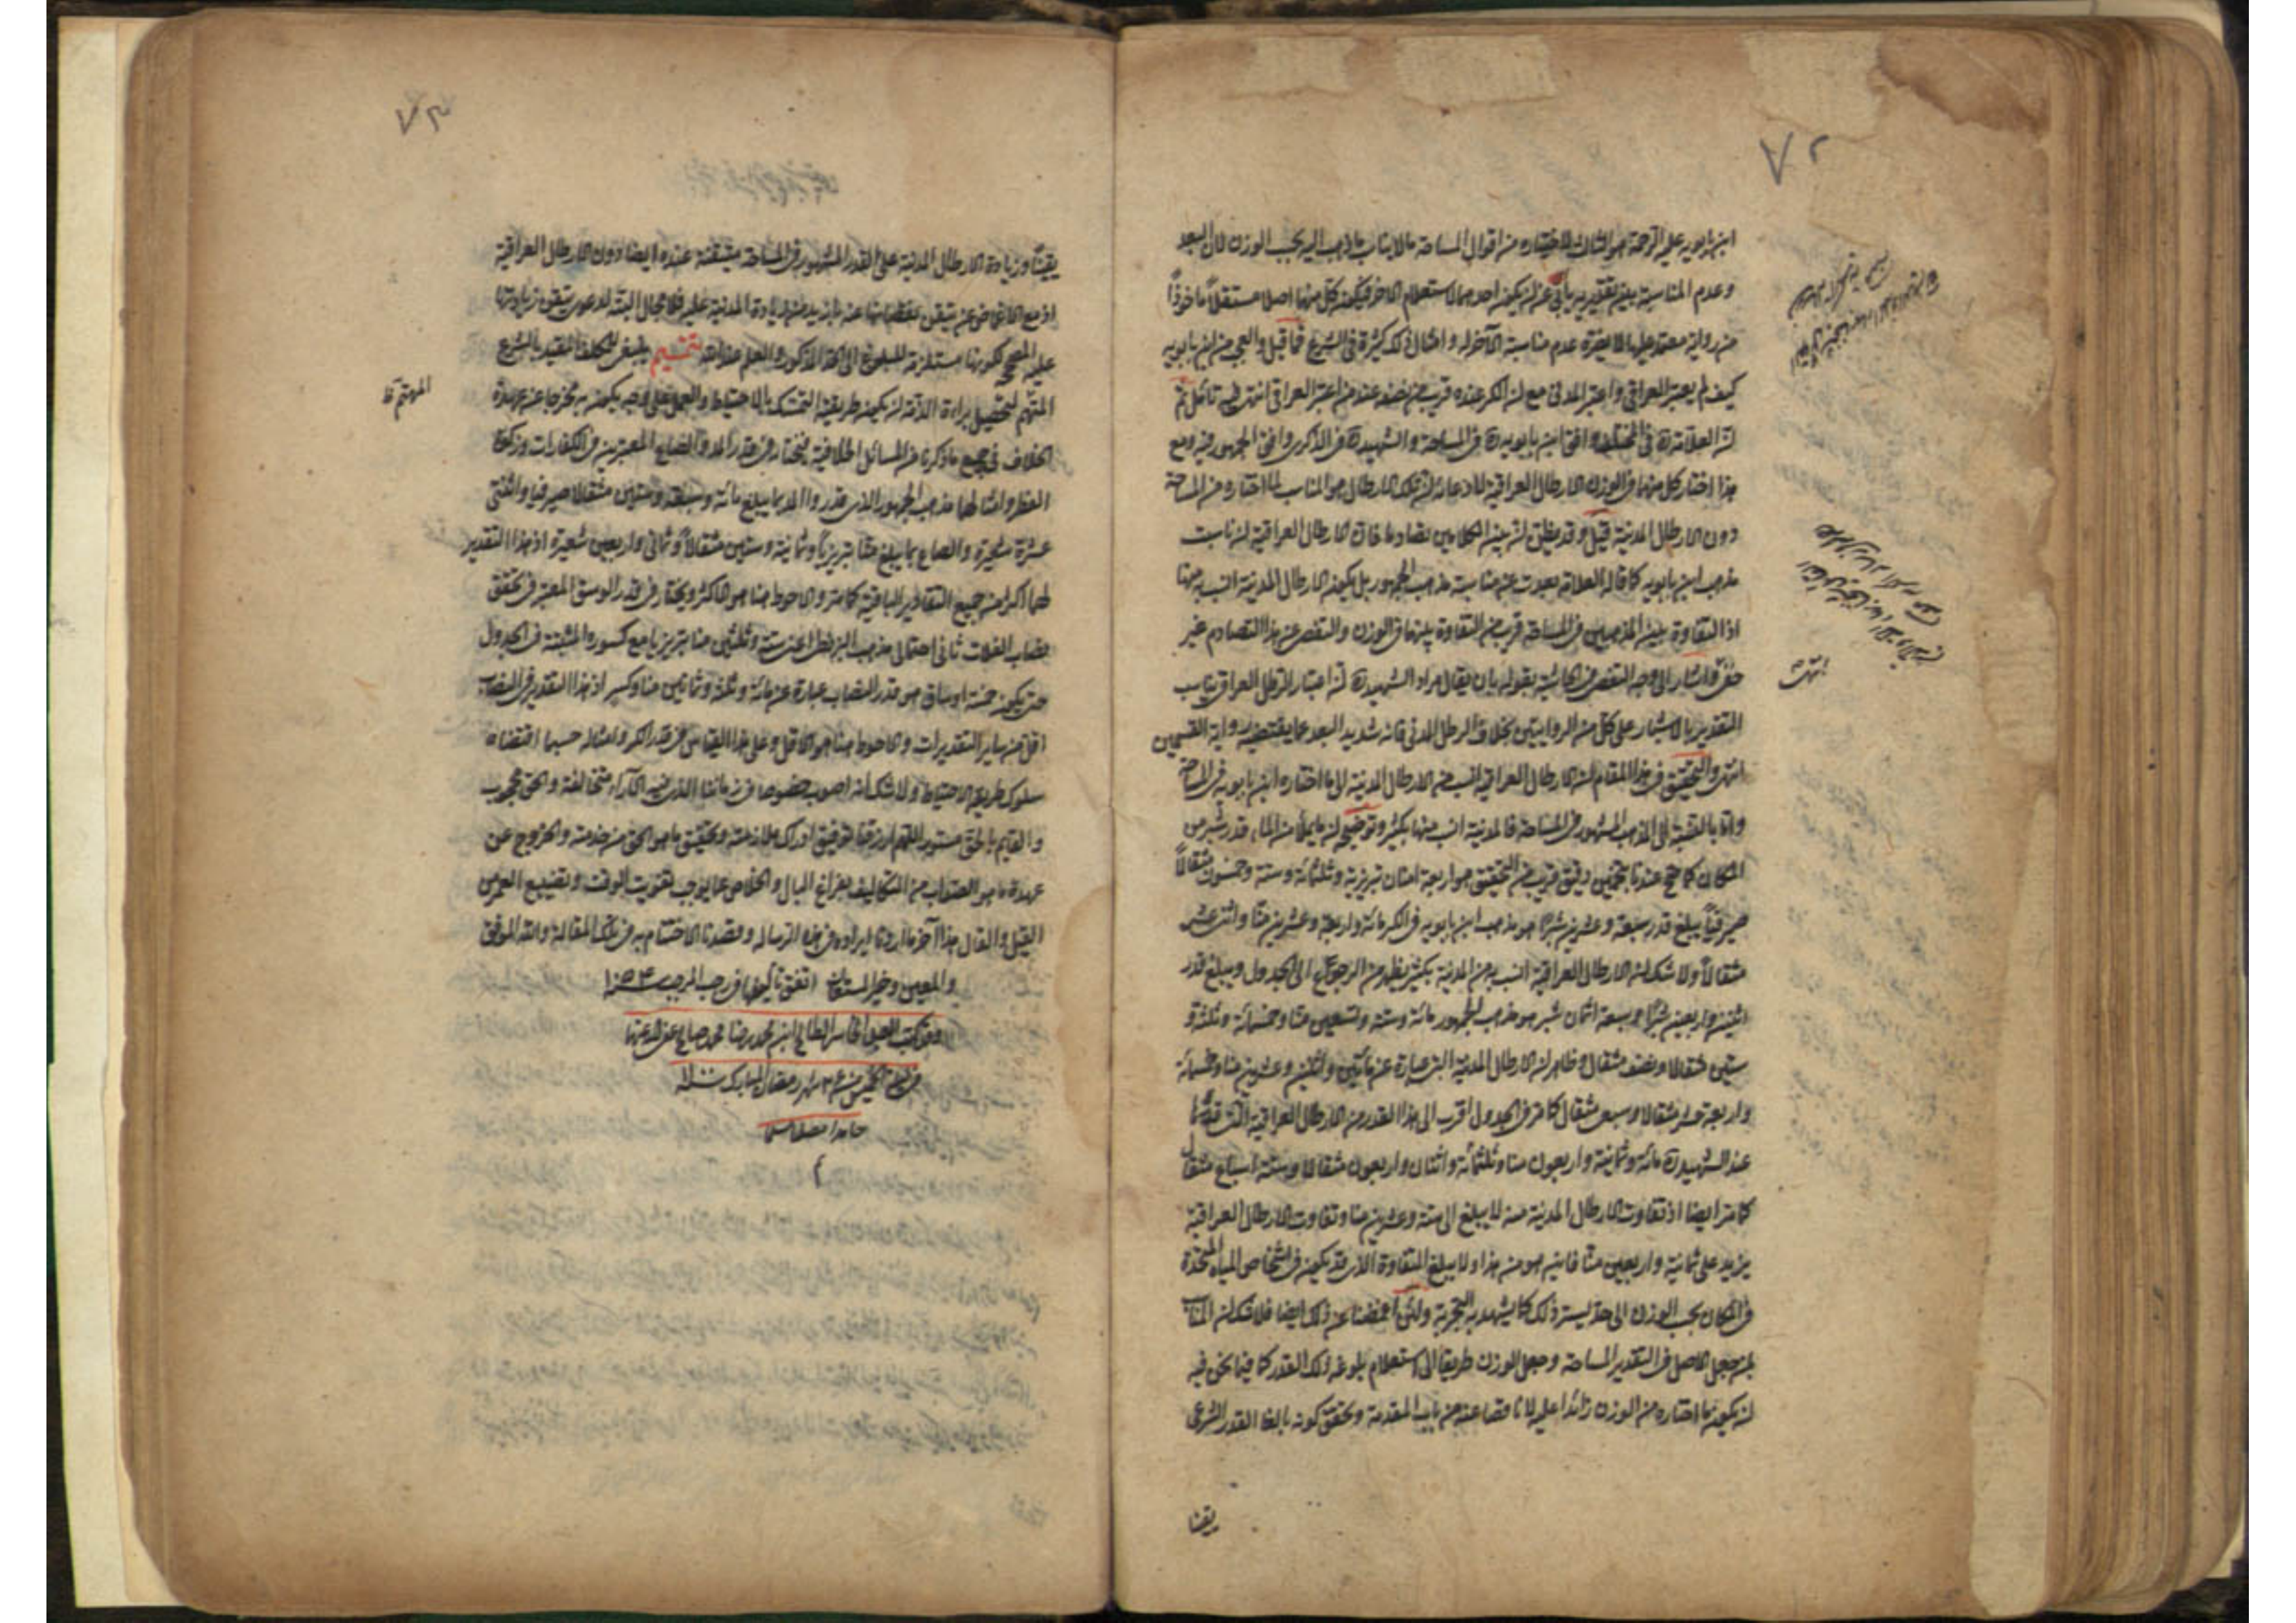 ٧٢
ابن بابويه عليه الرحمة هو الثالث لاختياره من اقوال المساحة ما لا يناسب ما ذهب اليه بحسب الوزن لان البعد
وعدم المناسبة بين تقديريه يأبى عن ان يكون احدهما لاستعلام الآخر فيكون كل منهما اصلا مستقلا مأخوذاً
من رواية معتمد عليها لا يضره عدم مناسبة الآخر له وامثال ذلك كثيرة فى الشرع فما قيل والعجب من ابن بابويه
كيف لم يعتبر العراقى واعتبر المدنى مع ان الكر عنده قريب من نصفه عند من اعتبر العراقى انتهى فيه تأمل ثم
ان العلامة ره فى المختلف وافق ابن بابويه ره فى المساحة والشهيد ره فى الذكرى وافق الجمهور فيه ومع
هذا اختار كل منهما فى الوزن الارطال العراقية لادعائه ان تلك الارطال هو المناسب لما اختاره من المساحة
دون الارطال المدنية قيل وقد يظن ان بين الكلامين تصادما فان الارطال العراقية ان ناسبت
مذهب ابن بابويه كما قاله العلامة بعدت عن مناسبة مذهب الجمهور بل يكون الارطال المدنية انسب به منها
اذ التفاوت بين المذهبين فى المساحة قريب من التفاوت بينهما فى الوزن والتفصى عن هذا التصادم غير
خفى واشار الى وجه التفصى فى الحاشية بقوله بان يقال مراد الشهيد ره ان اعتبار الرطل العراقى يناسب
التقدير بالاشبار على كل من الروايتين بخلاف الرطل المدنى فانه شديد البعد عما يقتضيه رواية القميين
انتهى والتحقيق فى هذا المقام ان الارطال العراقية انسب من الارطال المدنية الى ما اختاره ابن بابويه فى المساحة
واما بالنسبة الى المذهب المشهور فى المساحة فالمدنية انسب منها بكثير وتوضيحه ان ما يملأ من الماء قدر شبر من
المكان كما صح عندنا بتخمين دقيق قريب من التحقيق هو اربعة امنان تبريزية وثلثمائة وستة وخمسون مثقالاً
صيرفياً يبلغ قدر سبعة وعشرين شبرا هو مذهب ابن بابويه فى الكر مائة واربعة وعشرين منا واثنى عشر
مثقالاً ولا شك ان الارطال العراقية انسب به من المدنية بكثير يظهر من الرجوع الى الجدول ويبلغ قدر
اثنين واربعين شبرا وسبعة اثمان شبر هو مذهب الجمهور مائة وستة وتسعين منا وخمسمائة وثلثة و
ستين مثقالا ونصف مثقال وظاهر ان الارطال المدنية التى عبارة عن مائتين واثنين وعشرين منا وخمسمائة
واربعة عشر مثقالا وسبع مثقال كما مر فى الجدول اقرب الى هذا القدر من الارطال العراقية التى قدرها
عند الشهيد ره مائة وثمانية واربعون منا وثلثمائة واثنان واربعون مثقالا وستة اسباع مثقال
كما مر ايضا اذ تفاوت الارطال المدنية منه لا يبلغ الى ستة وعشرين منا وتفاوت الارطال العراقية
يزيد على ثمانية واربعين منا فاين هو من هذا ولا يبلغ التفاوت الذى قد يكون فى اشخاص المياه المتحدة
فى المكان بحسب الوزن الى حد يستر ذلك كما يشهد به التجربة ولئن اغمضنا عن ذلك ايضا فلا شك ان المناسب
لمن جعل الاصل فى التقدير المساحة وجعل الوزن طريقا الى استعلام بلوغه ذلك القدر كما فيما نحن فيه
ان يكون ما اختاره من الوزن زائدا عليه لا ناقصا عنه من باب المقدمة وتحقق كونه بالغا القدر الشرعى
يقينا
٧٣
يقيناً وزيادة الارطال المدنية على القدر المشهور فى المساحة متيقنة عنده ايضا دون الارطال العراقية
اذ مع الاغماض عن تيقن نقصانها عنه بازيد من زيادة المدنية عليه فلا مجال البتة لدعوى تيقن زيادتها
عليه المصحح لكونها مستلزمة للبلوغ الى الحد المذكور والعلم عند الله تتميم ينبغى للمكلف المقيد بالشرع
المتهم لتحصيل براءة الذمة ان يكون طريقته التمسك بالاحتياط والعمل على وجه يكون به مخرجا عن عهدة
المهتم ظ
الخلاف فى جميع ما ذكرنا من المسائل الخلافية فيختار فى قدر المد والصاع المعتبرين فى الكفارات وزكوة
الفطر وامثالهما مذهب الجمهور الذى قدروا المد بما يبلغ مائة وسبعة وستين مثقالا صيرفيا واثنتى
عشرة شعيرة والصاع بما يبلغ منا تبريزيا وثمانية وستين مثقالاً وثمانى واربعين شعيرة اذ هذا التقدير
لهما اكثر من جميع التقادير الباقية كما مر والاحوط هنا هو الاكثر ويختار فى قدر الوسق المعتبر فى تحقق
نصاب الغلات ثانى احتمالى مذهب البزنطى اعنى ستة وثلثين منا تبريزيا مع كسوره المثبتة فى الجدول
حتى يكون خمسة اوساق هو قدر النصاب عبارة عن مائة وثلثة وثمانين منا وكسر اذ هذا التقدير فى النصاب
اقل من ساير التقديرات والاحوط هنا هو الاقل وعلى هذا القياس فى قدر الكر وامثاله حسبما اقتضاه
سلوك طريق الاحتياط ولا شك انه اصوب خصوصا فى زماننا الذى فيه الآراء متخالفة والحق محجوب
والقايم بالحق مستور اللهم ارزقنا توفيق ادراك ملازمته وتحقيق ما هو الحق من خدمته والخروج عن
عهدة ما هو الصواب من التكاليف بفراغ البال والخلاص عما يوجب تفويت الوقت وتضييع العمر من
القيل والقال هذا آخر ما اردنا ايراده فى هذه الرسالة وقصدنا الاختتام به فى تلك المقالة والله الموفق
والمعين وخير المستعان اتفق تأليفها فى رجب المرجب
كتب العبد ابن محمد رضا محمد صالح عفى عنهما
شهر رمضان المبارك سنة
حامدا مصليا مسلما